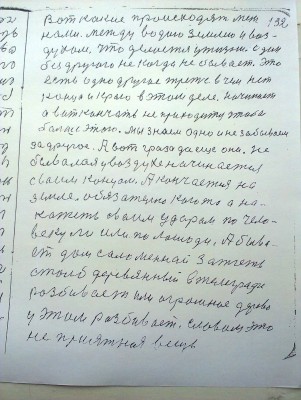 132
Вот какие происходят мен
нами. между водою землею и воз
духом. что движется у жизни. один
без другого не когда не бывает. это
есть одно другое третье в чем нет
конца и краю в этом деле. начинает
а вот кончать не приходит чтобы
больше этого. мы знаем одно и не забываем
за другое. А вот гроза да еще она. не
бывалая у воздухе начинается
своим концом. А кончается на
земле. обязательно кого то а на-
кажеть своим ударом по чело-
веку ли или по лошади. А быва-
ет дом саломенай зажгеть
столб деревянный в телиграфи
разбивает или огромное дерево
у этом разбивает. словом это
не приятная вещь